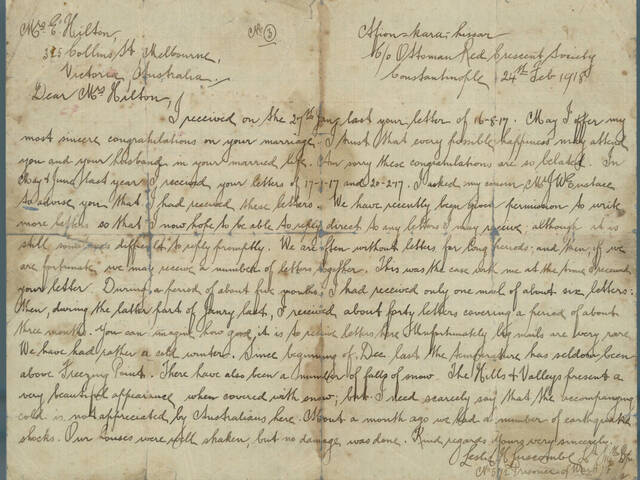 Mrs E. Hilton,
No (3)
Afion-Kara-hissar
325 Collins St Melbourne,
c/o Ottoman Red Crescent Society
Victoria, Australia.
Constantinople 24th Feb 1918
Dear Mrs Hilton,
I received on the 27th last your letter of 16-8-17. May I offer my
most sincere congratulations on your marriage. I trust that every possible happiness may attend
you and your husband in your married life. Am very these congratulations are so belated. In
May & June last year I received your letters of 17-1-17 and 20-2-17. I asked my cousin Mr J W Eustace
to advise you that I had received these letters. We have recently been given permission to write
more letters so that I now hope to be able to reply direct to any letters I may receive, although it is
still difficult to reply promptly. We are often without letters for long periods; and then, if we
are fortunate we may receive a number of letters together. This was the case with me at the time I received
your letter. During a period of about five months I had received only one mail of about six letters:
then, during the latter part of Janry last, I received about forty letters covering a period of about
three months. You can imagine how good it is to receive letters here. Unfortunately big mails are very rare.
We have had rather a cold winter. Since beginning of Dec last the temperature has seldom been
above Freezing Point. There have also been a number of falls of snow. The Hills & Valleys present a
very beautiful appearance when covered with snow, but I need scarcely say that the accompanying
cold is not appreciated by Australians here. About a month ago we had a number of earthquake
shocks. Our houses were well shaken, but no damage was done. Kind regards Yours very sincerely.
Leslie H Luscombe
Prisoner of War